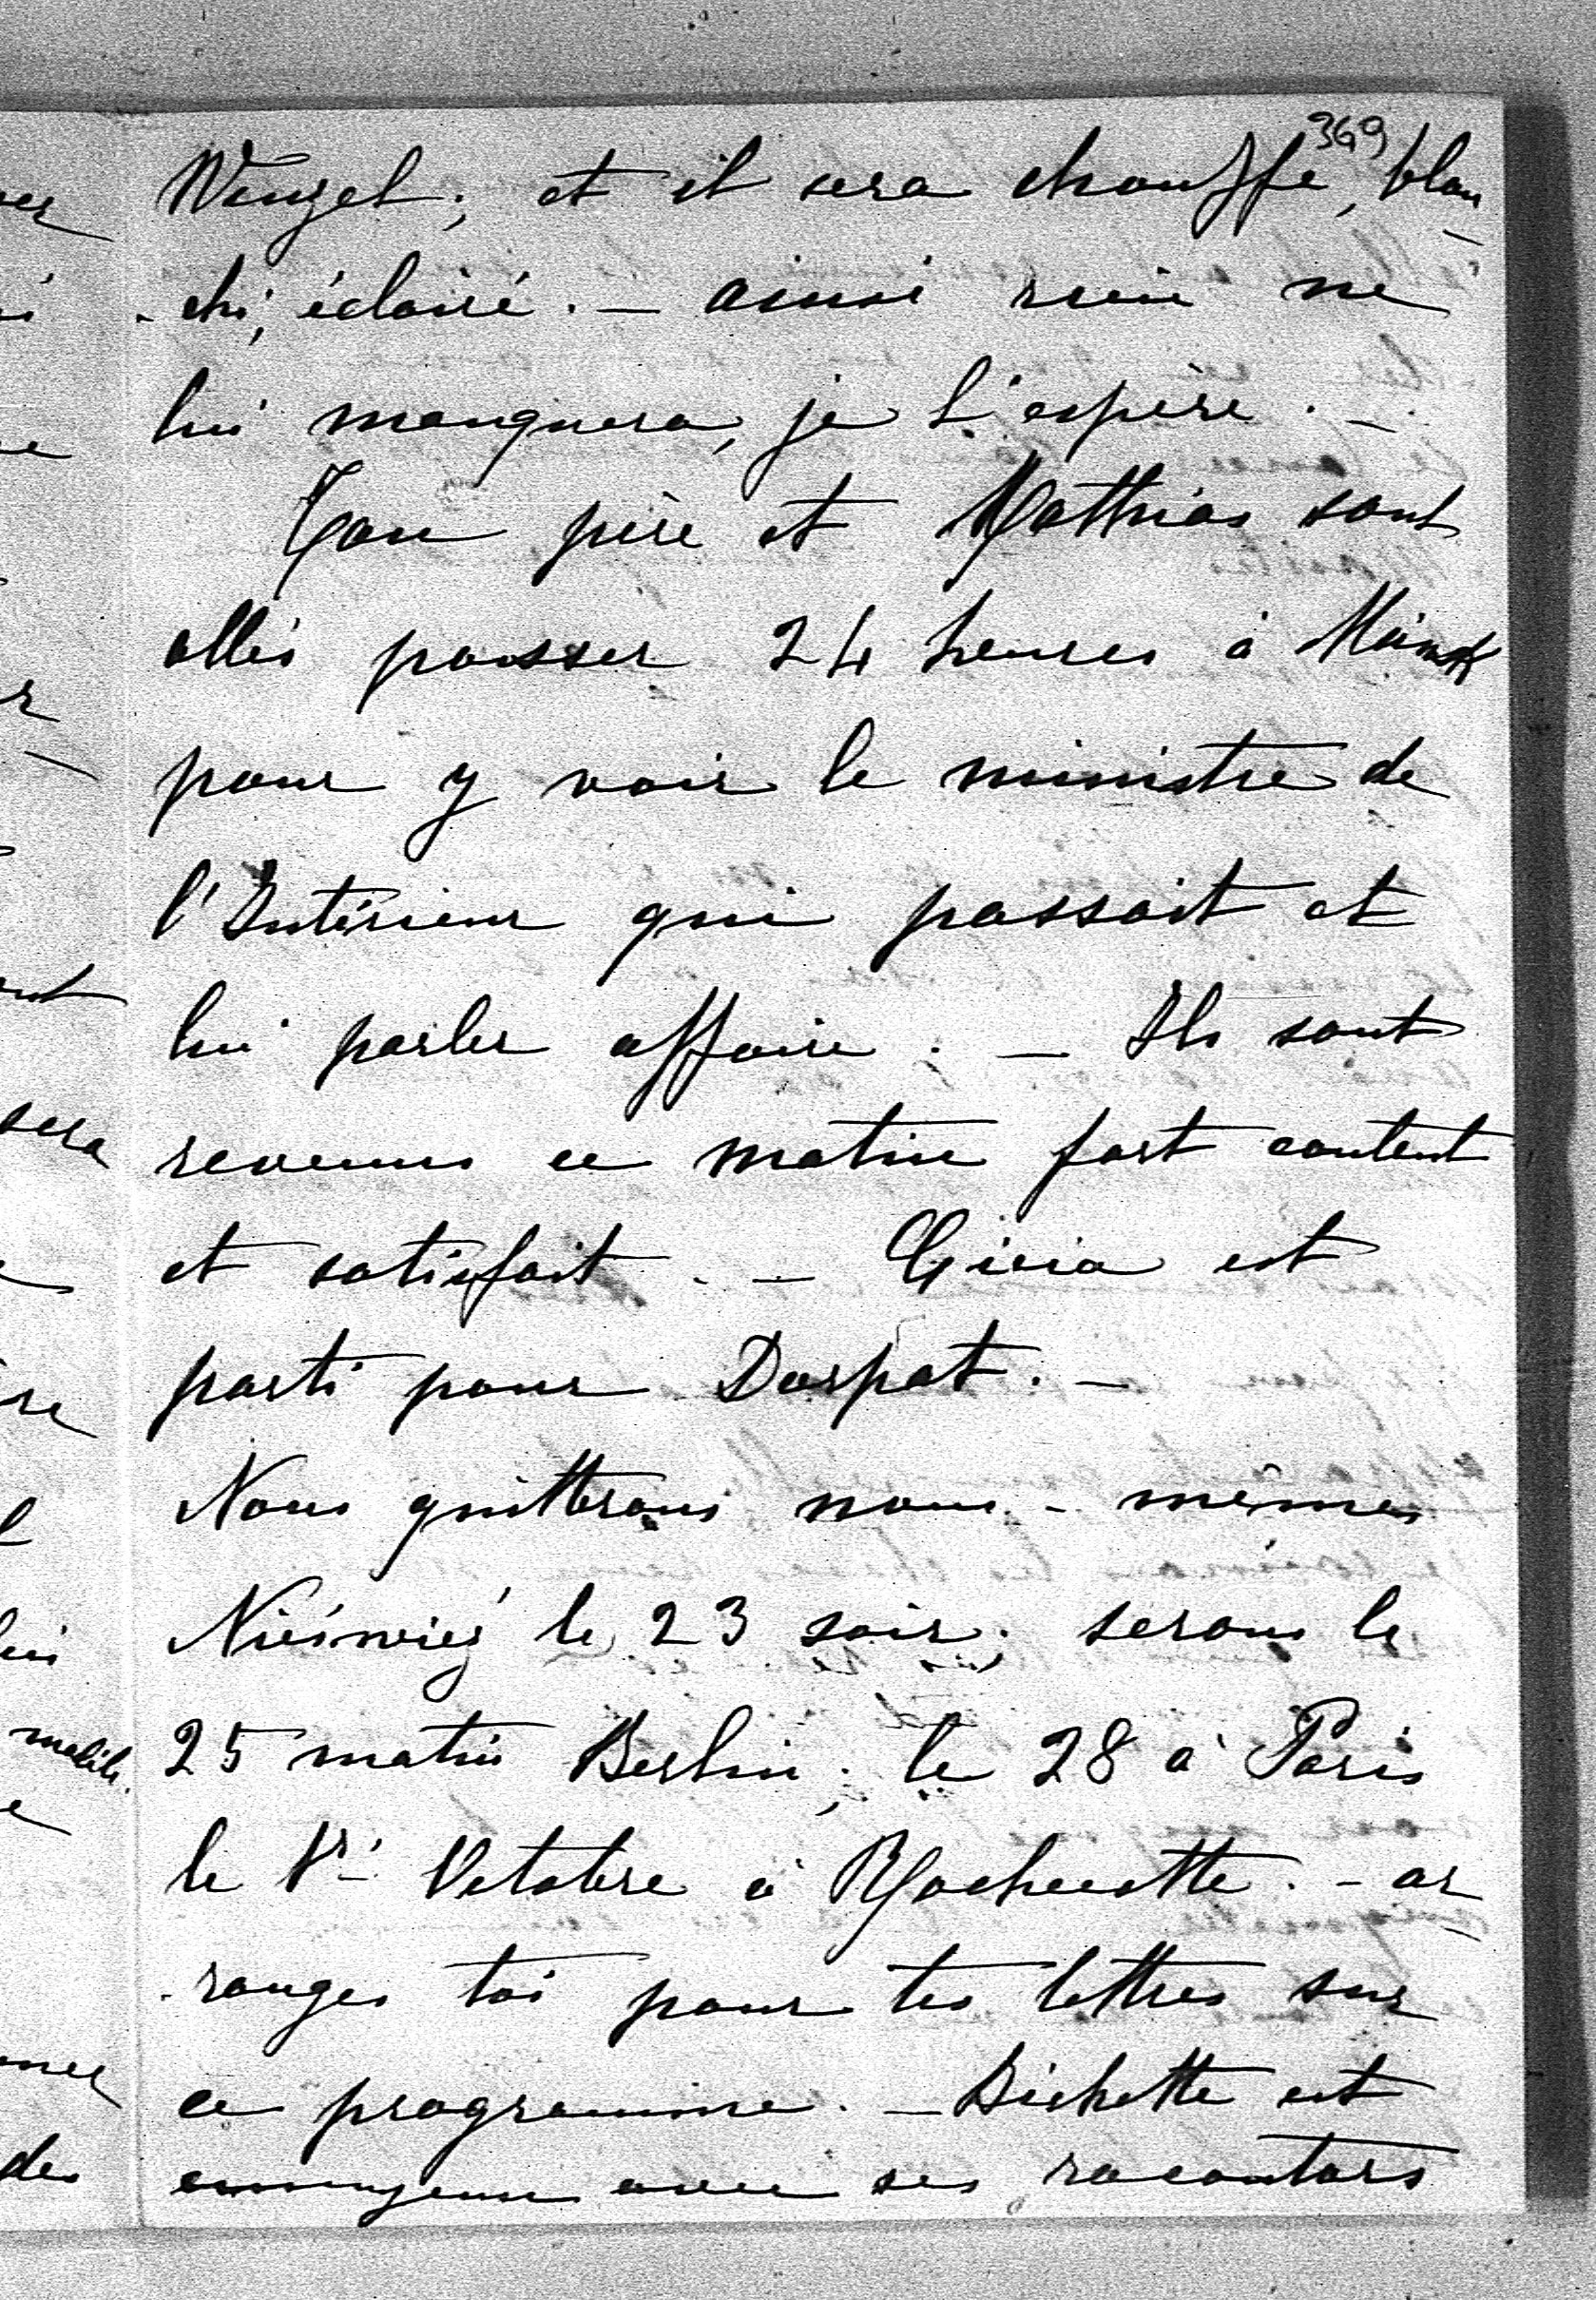 369
Wenzel; et il sera chauffé, blan-
-chi, éclairé. — ainsi rien ne
lui manquera, je l'espère. —
Ton père et Matthias sont
allés passer 24 heures à Minsk
pour y voir le ministre de
l'Intérieur qui passait et
lui parler affaire. — Ils sont
revenus ce matin fort content
et satisfait. — est
parti pour Dorpat. —
Nous quitterons nous-mêmes
Nieśwież le 23 soir; serons le
25 matin Berlin; le 28 à Paris
le 1r Octobre à Rochecotte. - ar-
-ranges toi pour tes lettres sur
ce programme. — Bichette est
ennuyeuse avec ses racontars